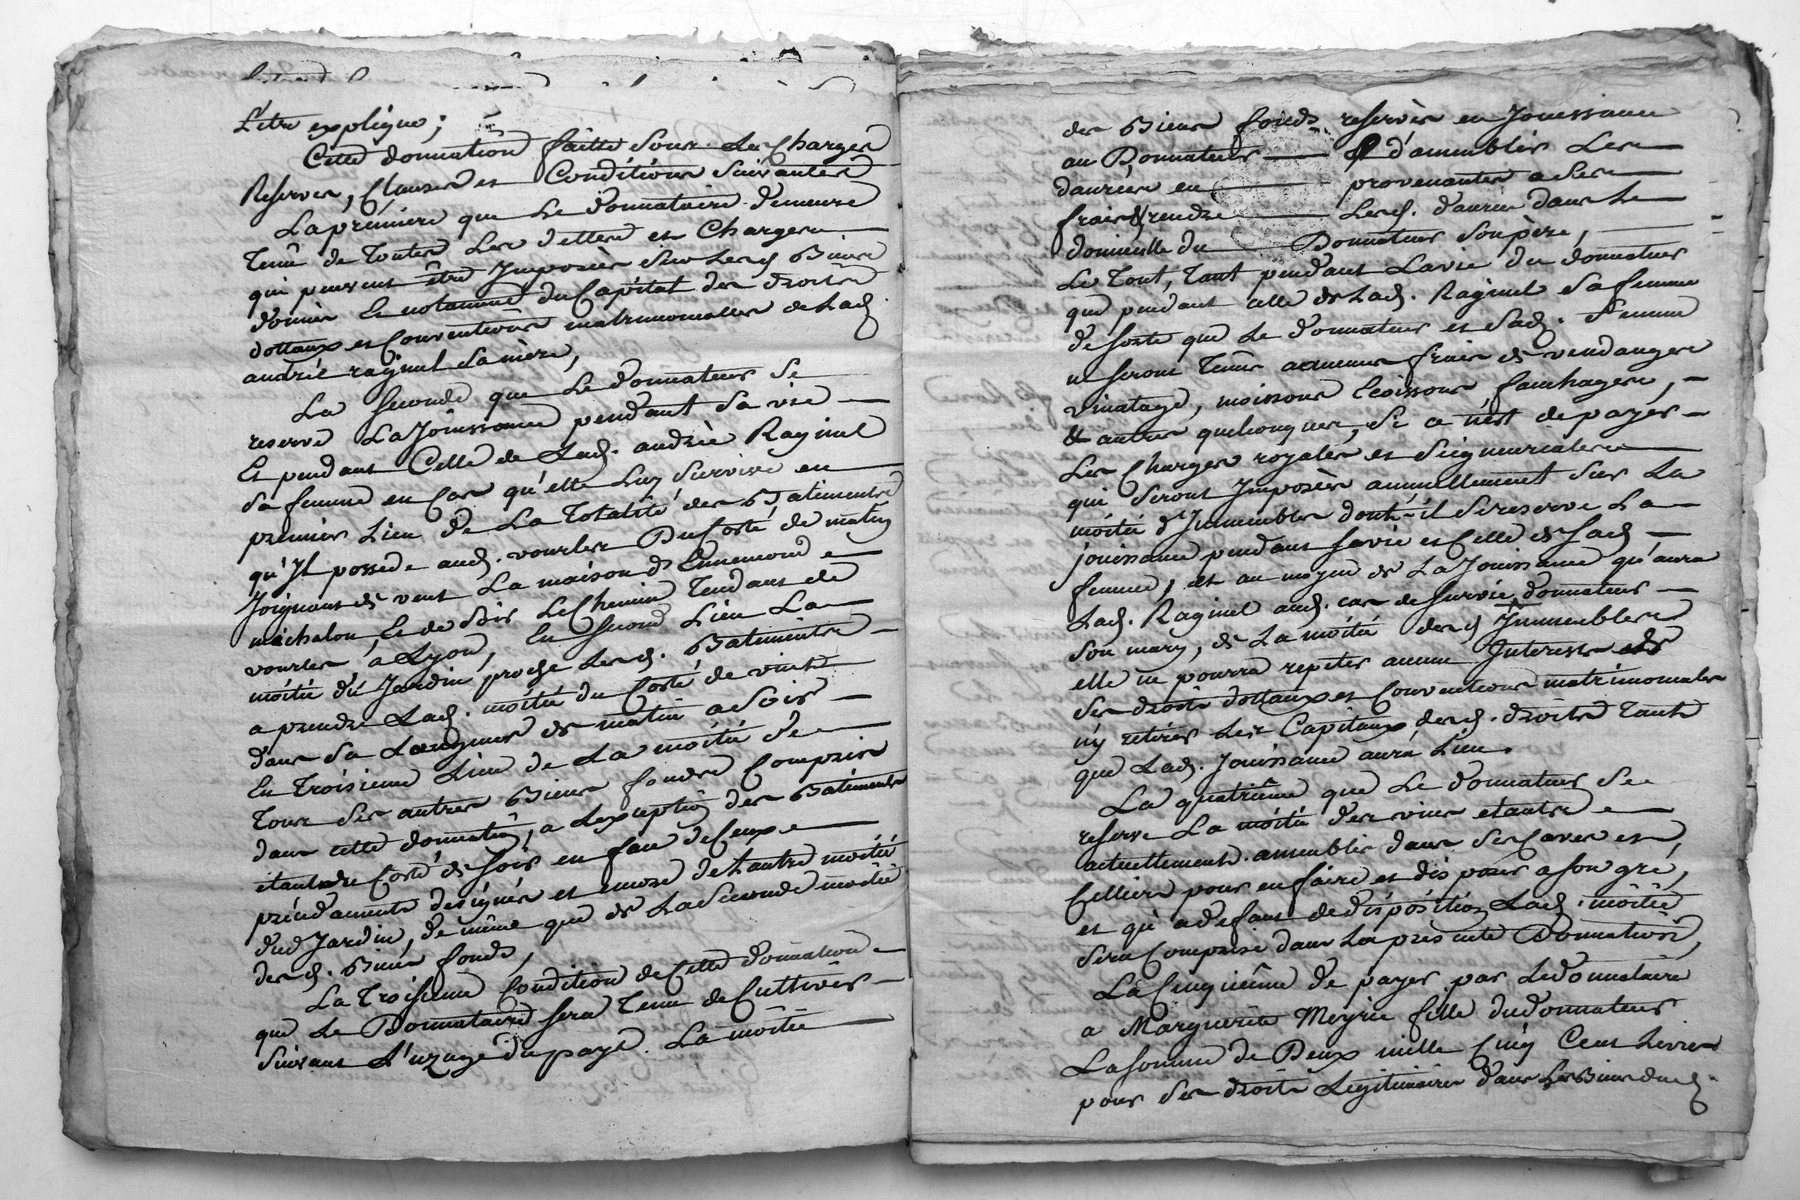 L'etre expliqué;
Cette donnation faitte sous les Charges
Reserves, Clauses et Conditions Suivantes
La première que Le donnataire demeure
Tenû de Toutes Les dettes et Charges
qui peuvent être Imposées sur lesd Biens
donnés Et notamment du Capital des droits
dottaux et Conventions matrimonialles de Lad.
andrée raginel Sa mère,
La Seconde que Le donnateur Se
reserve La Jouissance pendant Sa vie
Et pendant Celle de Lad. andrée Raginel
Sa femme en Cas qu'elle Luy Survive en
premier Lieu de La Totalité des Batiments
qu'Il possede aud. vourles Du Costé de matin
Joignant de vent La maison d'Ennemond
michalon Et de Soir Le Chemin Tendant de
vourles à Lyon, En Second Lieu La
moitié du Jardin proche Lesd. Batiments
a prendre Lad. moitié du Costé de vent
dans Sa Longueur de matin a Soir
En Troisieme Lieu de La moitié de
Tous Ses autres Biens fonds Compris
dans cette donnation, a Lexception des Batiments
étant du Costé de Soir en face de Ceux
précédaments designés et encore de L'autre moitié
dud Jardin, de même que de La Seconde moitié
desd. Biens fonds,
La Troisieme Condition de Cette donnation
que Le Donnataire Sera Tenu de Cultiver
Suivant L'uzage du pays La moitié
des Biens fonds reservés en Jouissance
au Donnateur d'amenbler Les
danrées en provenantes a Ses
frais & rendre Lesd. danrées dans Le
domicille du Donnateur Son père,
Le Tout, Tant pendant La vie du donnateur
que pendant celle de Lad. Raginel Sa femme
de Sorte que Le donnateur et Sad. Femme
ne Seront Tenus a aucuns frais de vendanges
vinatage, moissons Ecossons, fauchages,
& autres quelconques, Si ce n'est de payer
Les Charges royales et Seigneuriales
qui Seront Imposées annuellement Sur La
moitié d'Immeubles dont il Se reserve La
jouissance pendant Sa vie et Celle de Sad
femme, et au moyen de La Jouissance qu'aura
Lad. Raginel aud. cas de Survie donnateur
Son mary, de La moitié desd Immeubles
elle ne pourra repeter aucuns Interests de
Ses droits dottaux et Conventions matrimoniales
n'y retirer Les Capitaux desd. droits Tant
que Lad. Jouissance aura Lieu.
La quatriême que Le donnateur Se
reserve La moitié des vins étants
actuellement amenblés dans Ses Caves et
Celliers pour en faire et disposer a Son gré,
et qu'a deffaut de disposition Lad. moitié
Sera Comprise dans La presente Donnation,
La Cinquième de payer par Le donnataire
a Marguerite Meyrie fille du donnateur
La Somme de Deux mille Cinq Cent Livres
pour Ses droits Legitimaires dans Les Biens dud.